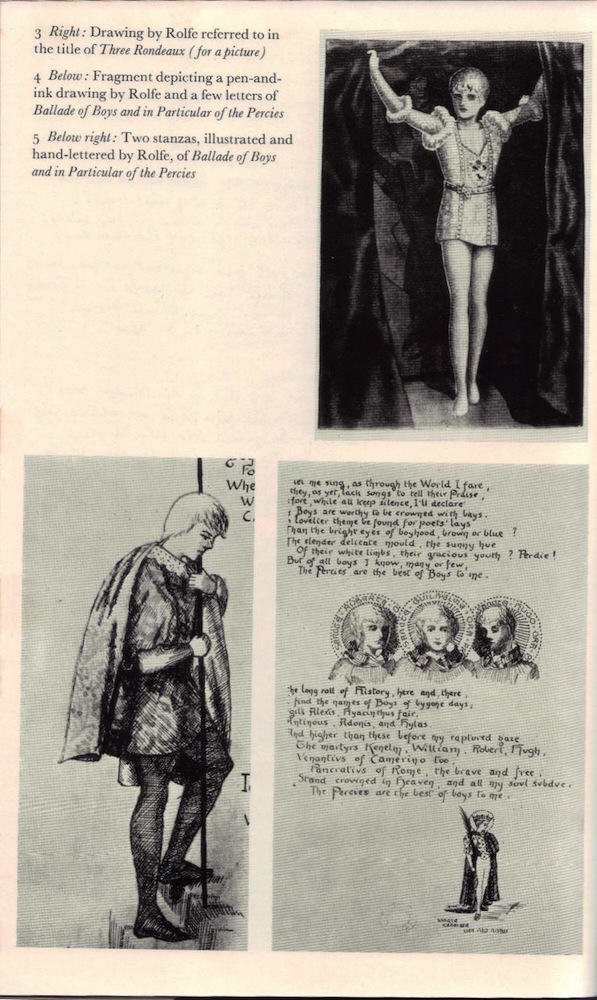 3 Right: Drawing by Rolfe referred to in
the title of Three Rondeaux (for a picture)
4 Below: Fragment depicting a pen-and-
ink drawing by Rolfe and a few letters of
Ballade of Boys and in Particular of the Percies
5 Below right: Two stanzas, illustrated and
hand-lettered by Rolfe, of Ballade of Boys
and in Particular of the Percies
Po
Whe
W
C
I
let me sing, as through the World I fare,
they, as yet, lack songs to tell their Praise,
fore, while all keep silence, I'll declare
Boys are worthy to be crowned with bays.
lovelier theme be found for poets' lays
than the bright eyes of boyhood, brown or blue ?
The slender delicate mould, the sunny hue
Of their white limbs, their gracious youth ? Perdie !
But of all boys I know, many or few,
The Percies are the best of Boys to me.
he long roll of History, here and there,
find the names of Boys of bygone days;
gil's Alexis, Hyacinthus fair,
Antinous, Adonis, and Hylas.
And higher than these before my raptured gaze
The martyrs Kenelm, William, Robert, Hugh,
Venantivs of Camerino too,
Pancrativs of Rome, the brave and free,
Stand crowned in Heaven, and all my sovl svbdve.
The Percies are the best of boys to me.